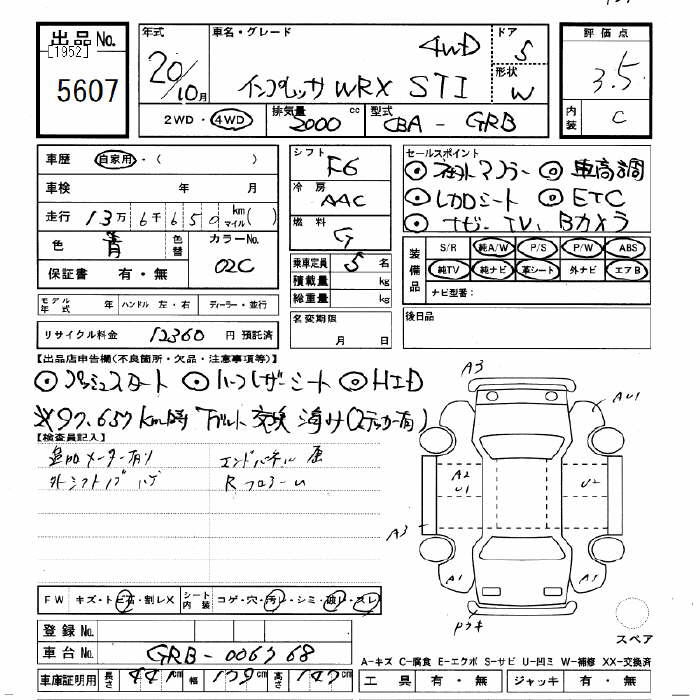 出品 No.
[1952]
5607
年式 車名・グレード ドア
20/10月 インプレッサ WRX STI 4WD 5
形状 W
評価点
3.5
内装 C
2WD・4WD 排気量 2000 cc 型式 CBA - GRB
車歴 自家用・( )
車検 年 月
走行 13万6千650 km マイル( )
色 青 色替 カラーNo. 02C
保証書 有・無
シフト F6
冷房 AAC
燃料 G
乗車定員 5 名
積載量 kg
総重量 kg
名変期限 月 日
セールスポイント
◎社外マフラー ◎車高調
◎レカロシート ◎ETC
◎ナビ・TV、Bカメラ
装備品 S/R 純A/W P/S P/W ABS
純TV 純ナビ 革シート 外ナビ エアB
ナビ型番:
後日品
モデル年式 年 ハンドル 左・右 ディーラー・並行
リサイクル料金 12360 円 預託済
【出品店申告欄(不良箇所・欠品・注意事項等)】
◎プッシュスタート ◎ハーフレザーシート ◎HID
※97.657km時 交換 (ステッカー有)
【検査員記入】
追加メーター有り エンドパネル
外シフトノブ ハゲ Rフロアー
FW キズ・トビ石・割レX シート内装 コゲ・穴・汚レ・シミ・破レ・スレ
登録 No.
車台 No. GRB-006768
車庫証明用 長サ 441cm 幅 179cm 高サ 147cm
A3
AU1
A2
U1
U2
A3
A1
A1
スペア
A-キズ C-腐食 E-エクボ S-サビ U-凹ミ W-補修 XX-交換済
工具 有・無 ジャッキ 有・無